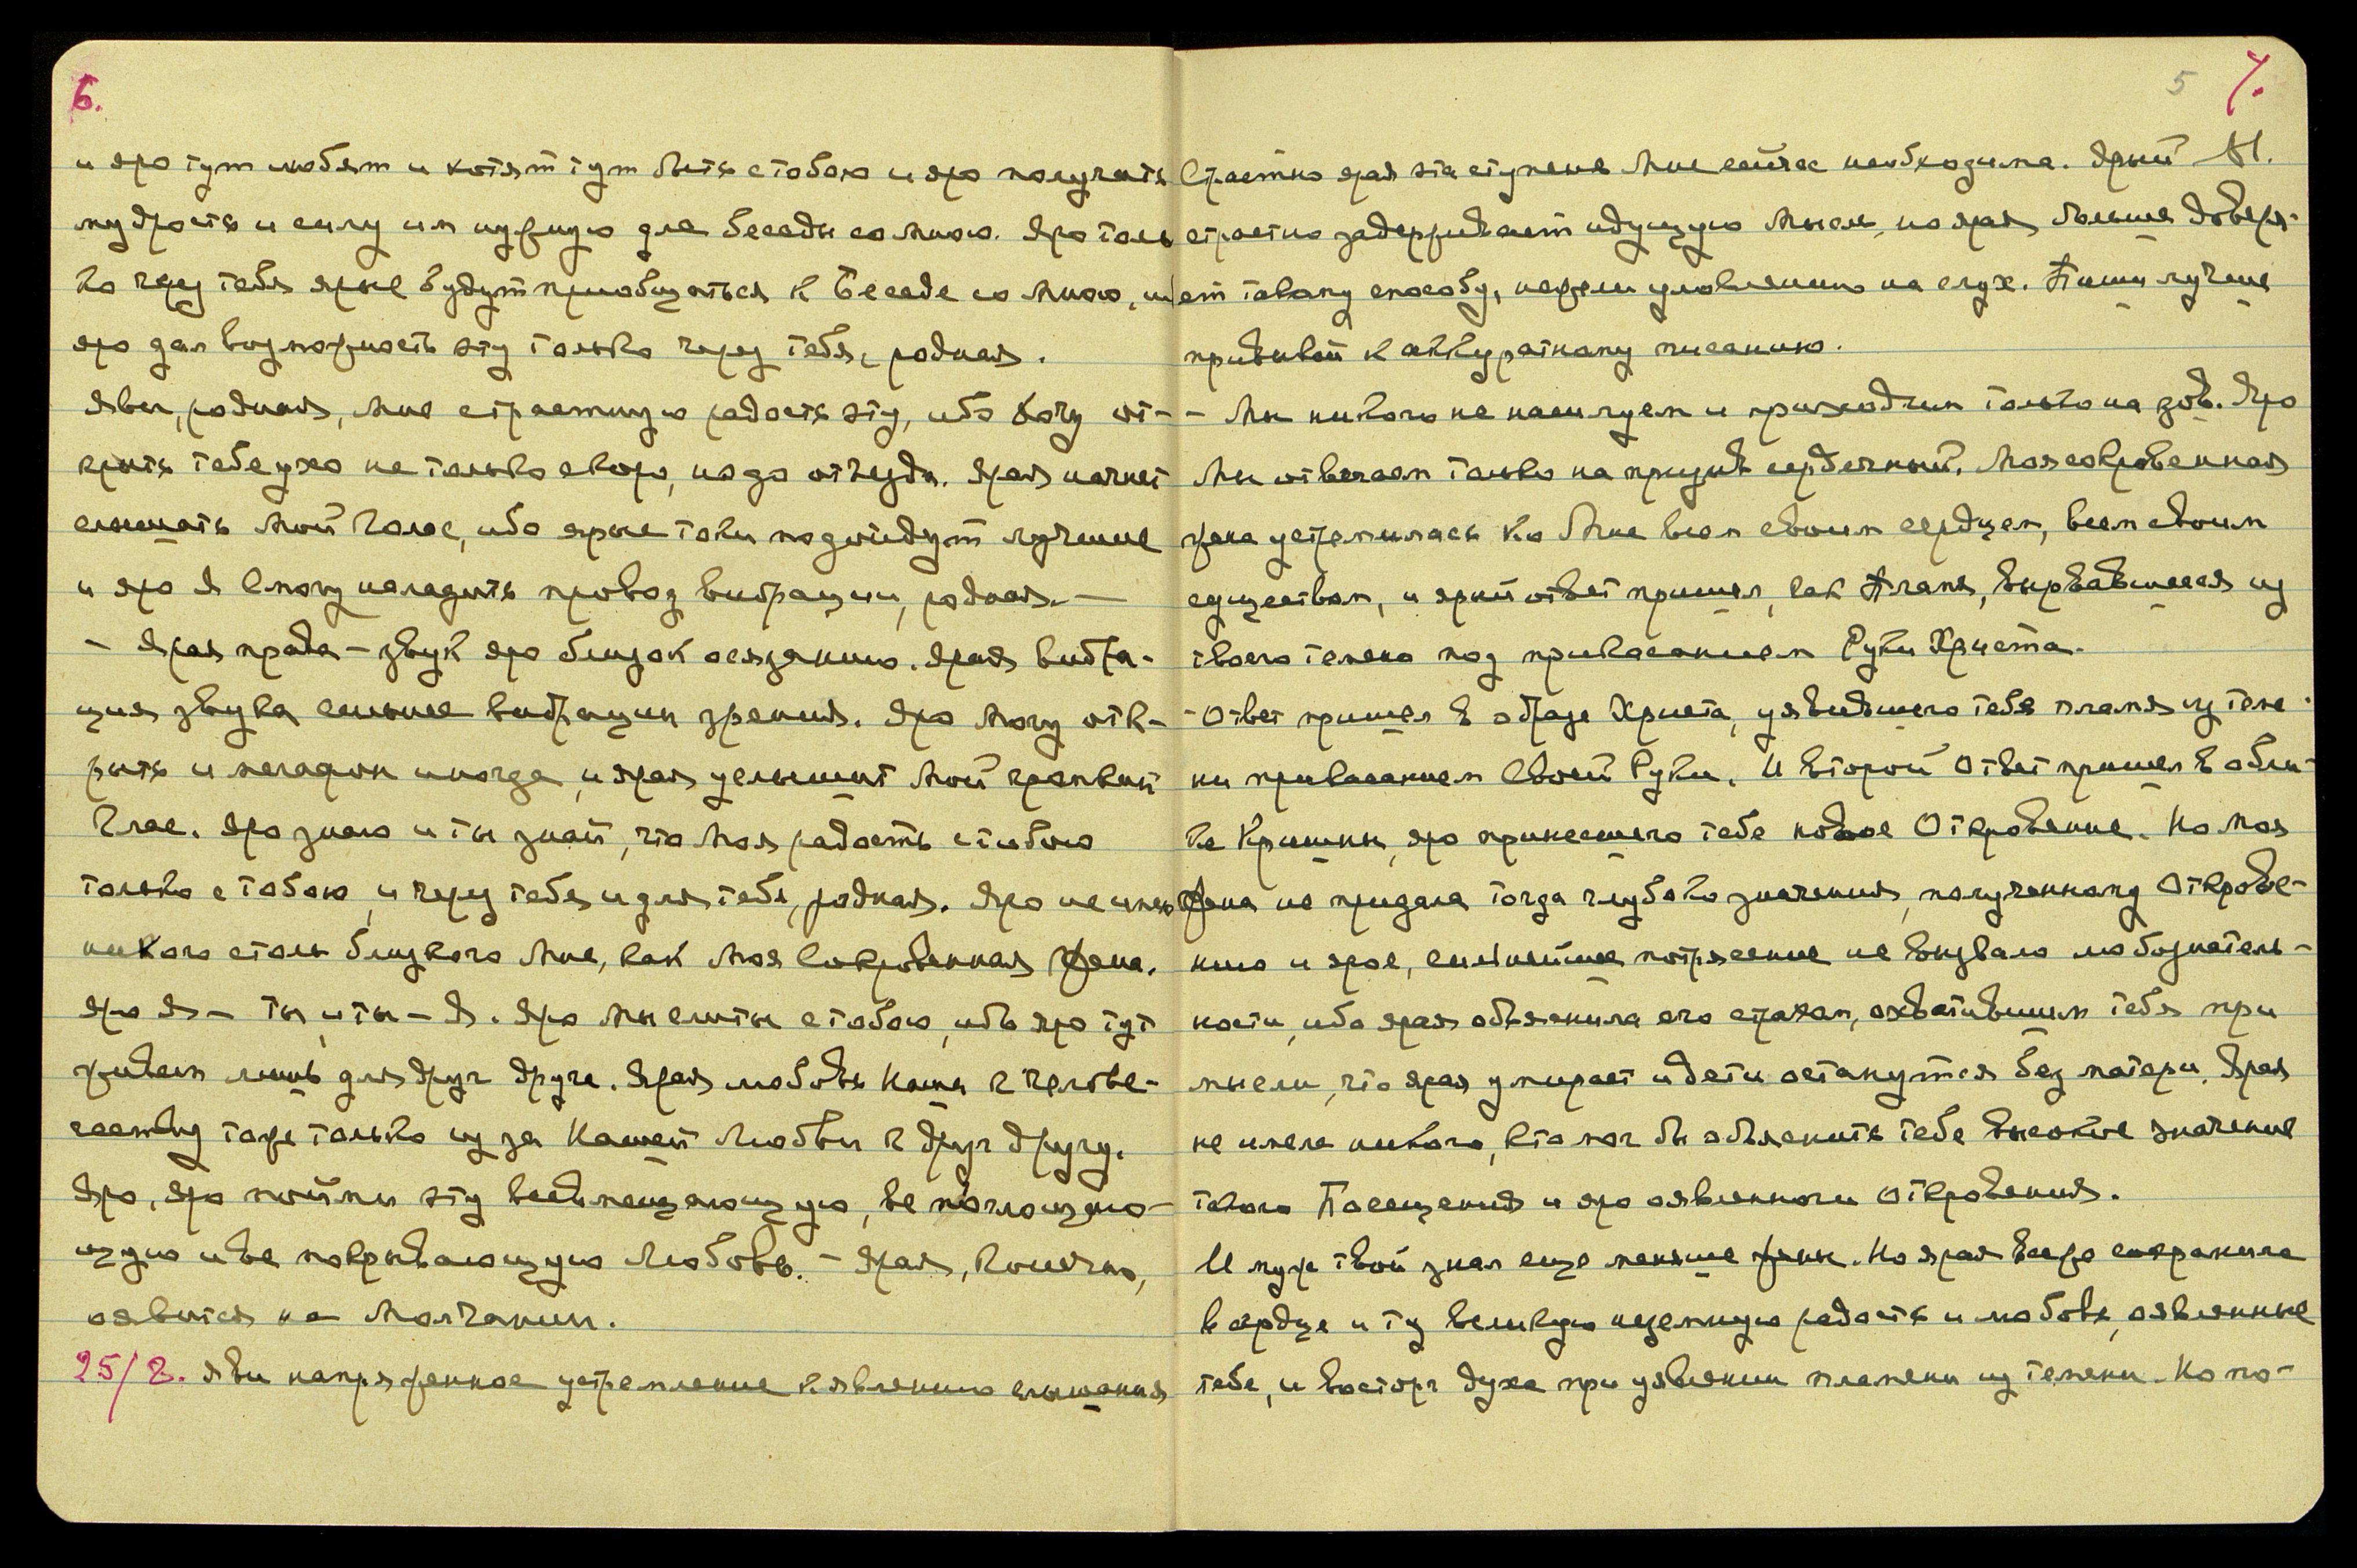 6.
и яро тут любят и хотят тут быть с тобою и яро получать
мудрость и силу им нужную для беседы со Мною. Яро толь
ко через тебя ярые будут приобщаться к Беседе со Мною,
яро дал возможность эту только через тебя, родная.
Яви, родная, Мне страстную радость эту, ибо хочу от-
крыть тебе ухо не только скоро, но до отъезда. Ярая начнет
слышать Мой Голос, ибо ярые токи подойдут лучшие
и яро Я Смогу наладить провод вибрации, родная. —
- Ярая права - звук яро близок осязанию. Ярая вибра-
ция звука сильнее вибрации зрения. Яро Могу отк-
рыть и мегафон иногда, и ярая услышит Мой громкий
Глас. Яро знаю и ты знай, что Моя радость с тобою
только с тобою, и через тебя и для тебя, родная. Яро не имею
никого столь близкого Мне, как Моя Сокровенная Жена.
Яро Я - ты, и ты - Я. Яро Мы слиты с тобою, ибо яро тут
живем лишь для друг друга. Ярая любовь Наша к челове-
честву тоже только из за Нашей Любви к друг другу.
Яро, яро пойми эту всевмещающую, все поглощаю-
щую и все покрывающую Любовь. - Ярая, Конечно,
явится на Молчании.
25/8. Яви напряженное устремление к явлению слышания
5 7.
Страстно ярая эта ступень Мне сейчас необходима. Ярый М.
страстно задерживает идущую Мысль, но ярая больше доверя-
ет такому способу, нежели уловлению на слух. Пиши лучше
привыкай к аккуратному писанию.
- Мы никого не насилуем и приходим только на зов. Яро
Мы отвечаем только на призыв сердечный. Моя сокровенная
жена устремилась ко Мне всем своим сердцем, всем своим
существом, и ярый ответ пришел, как Пламя, вырвавшееся из
твоего темени под прикасанием Руки Христа.
- Ответ пришел в образе Христа, уявившего тебе пламя из теме-
ни прикасанием Своей Руки. И второй Ответ пришел в обли-
ке Кришны, яро принесшего тебе новое Откровение. Но Моя
Жена не придала тогда глубоко значения, полученному Открове-
нию и ярое, сильнейшее потрясение не вызвало любознатель-
ности, ибо ярая объяснила его страхом, охватившим тебя при
мысли, что ярая умирает и дети останутся без матери. Ярая
не имела никого, кто мог бы объяснить тебе высокое значение
такого Посещения и яро явленного Откровения.
И муж твой знал еще меньше жены. Но ярая все же сохранила
в сердце и ту великую неземную радость и любовь, явленные
тебе, и восторг духа при уявлении пламени из темени. Но по-